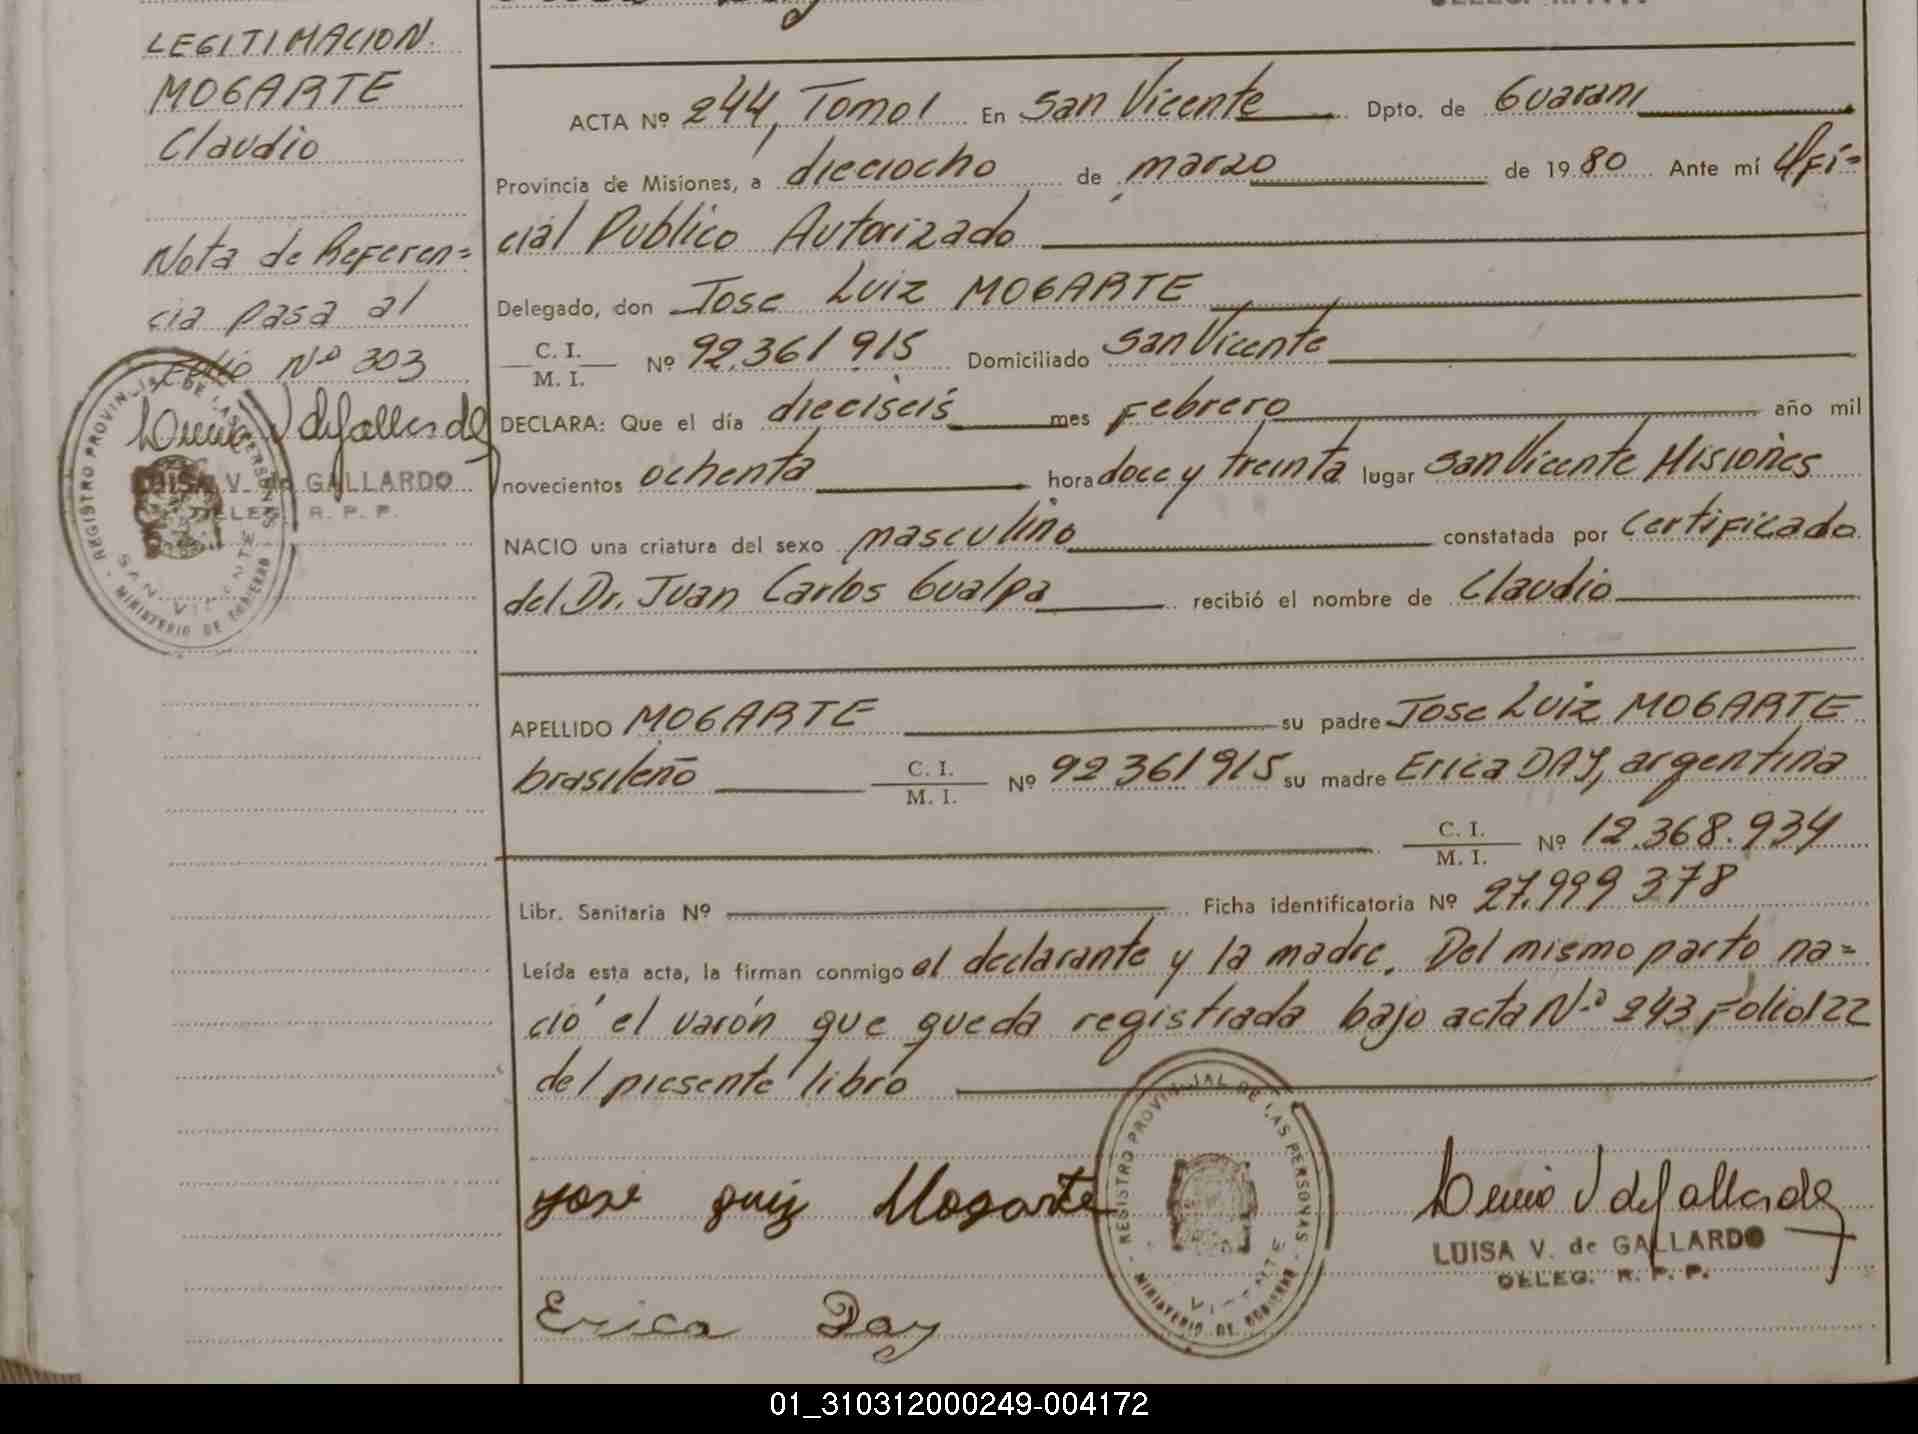 LEGITIMACION.
MOGARTE
Claudio
Nota de Referen=
cia pasa al
Folio Nº 303
LUISA V. de GALLARDO
DELEG. R. P. P.
REGISTRO PROVINCIAL DE LAS PERSONAS
SAN VICENTE
MINISTERIO DE GOBIERNO
ACTA Nº 244, Tomo I En San Vicente Dpto. de Guarani
Provincia de Misiones, a dieciocho de marzo de 1980 Ante mí Ofi=
cial Publico Autorizado
Delegado, don Jose Luiz MOGARTE
C. I. / M. I. Nº 92.361915 Domiciliado San Vicente
DECLARA: Que el día dieciseis mes Febrero año mil
novecientos ochenta hora doce y treinta lugar San Vicente Misiones
NACIO una criatura del sexo masculino constatada por Certificado
del Dr. Juan Carlos Gualpa recibió el nombre de Claudio
APELLIDO MOGARTE su padre Jose Luiz MOGARTE
brasileño C. I. / M. I. Nº 92361915 su madre Erica DAY, argentina
C. I. / M. I. Nº 12.368.934
Libr. Sanitaria Nº Ficha identificatoria Nº 27.999378
Leída esta acta, la firman conmigo el declarante y la madre. Del mismo parto na=
ció el varón que queda registrada bajo acta Nº 243 Folio 122
del presente libro
Jose Luiz Mogarte
REGISTRO PROVINCIAL DE LAS PERSONAS
VICENTE
MINISTERIO DE GOBIERNO
LUISA V. de GALLARDO
DELEG. R. P. P.
Erica Day
01_310312000249-004172